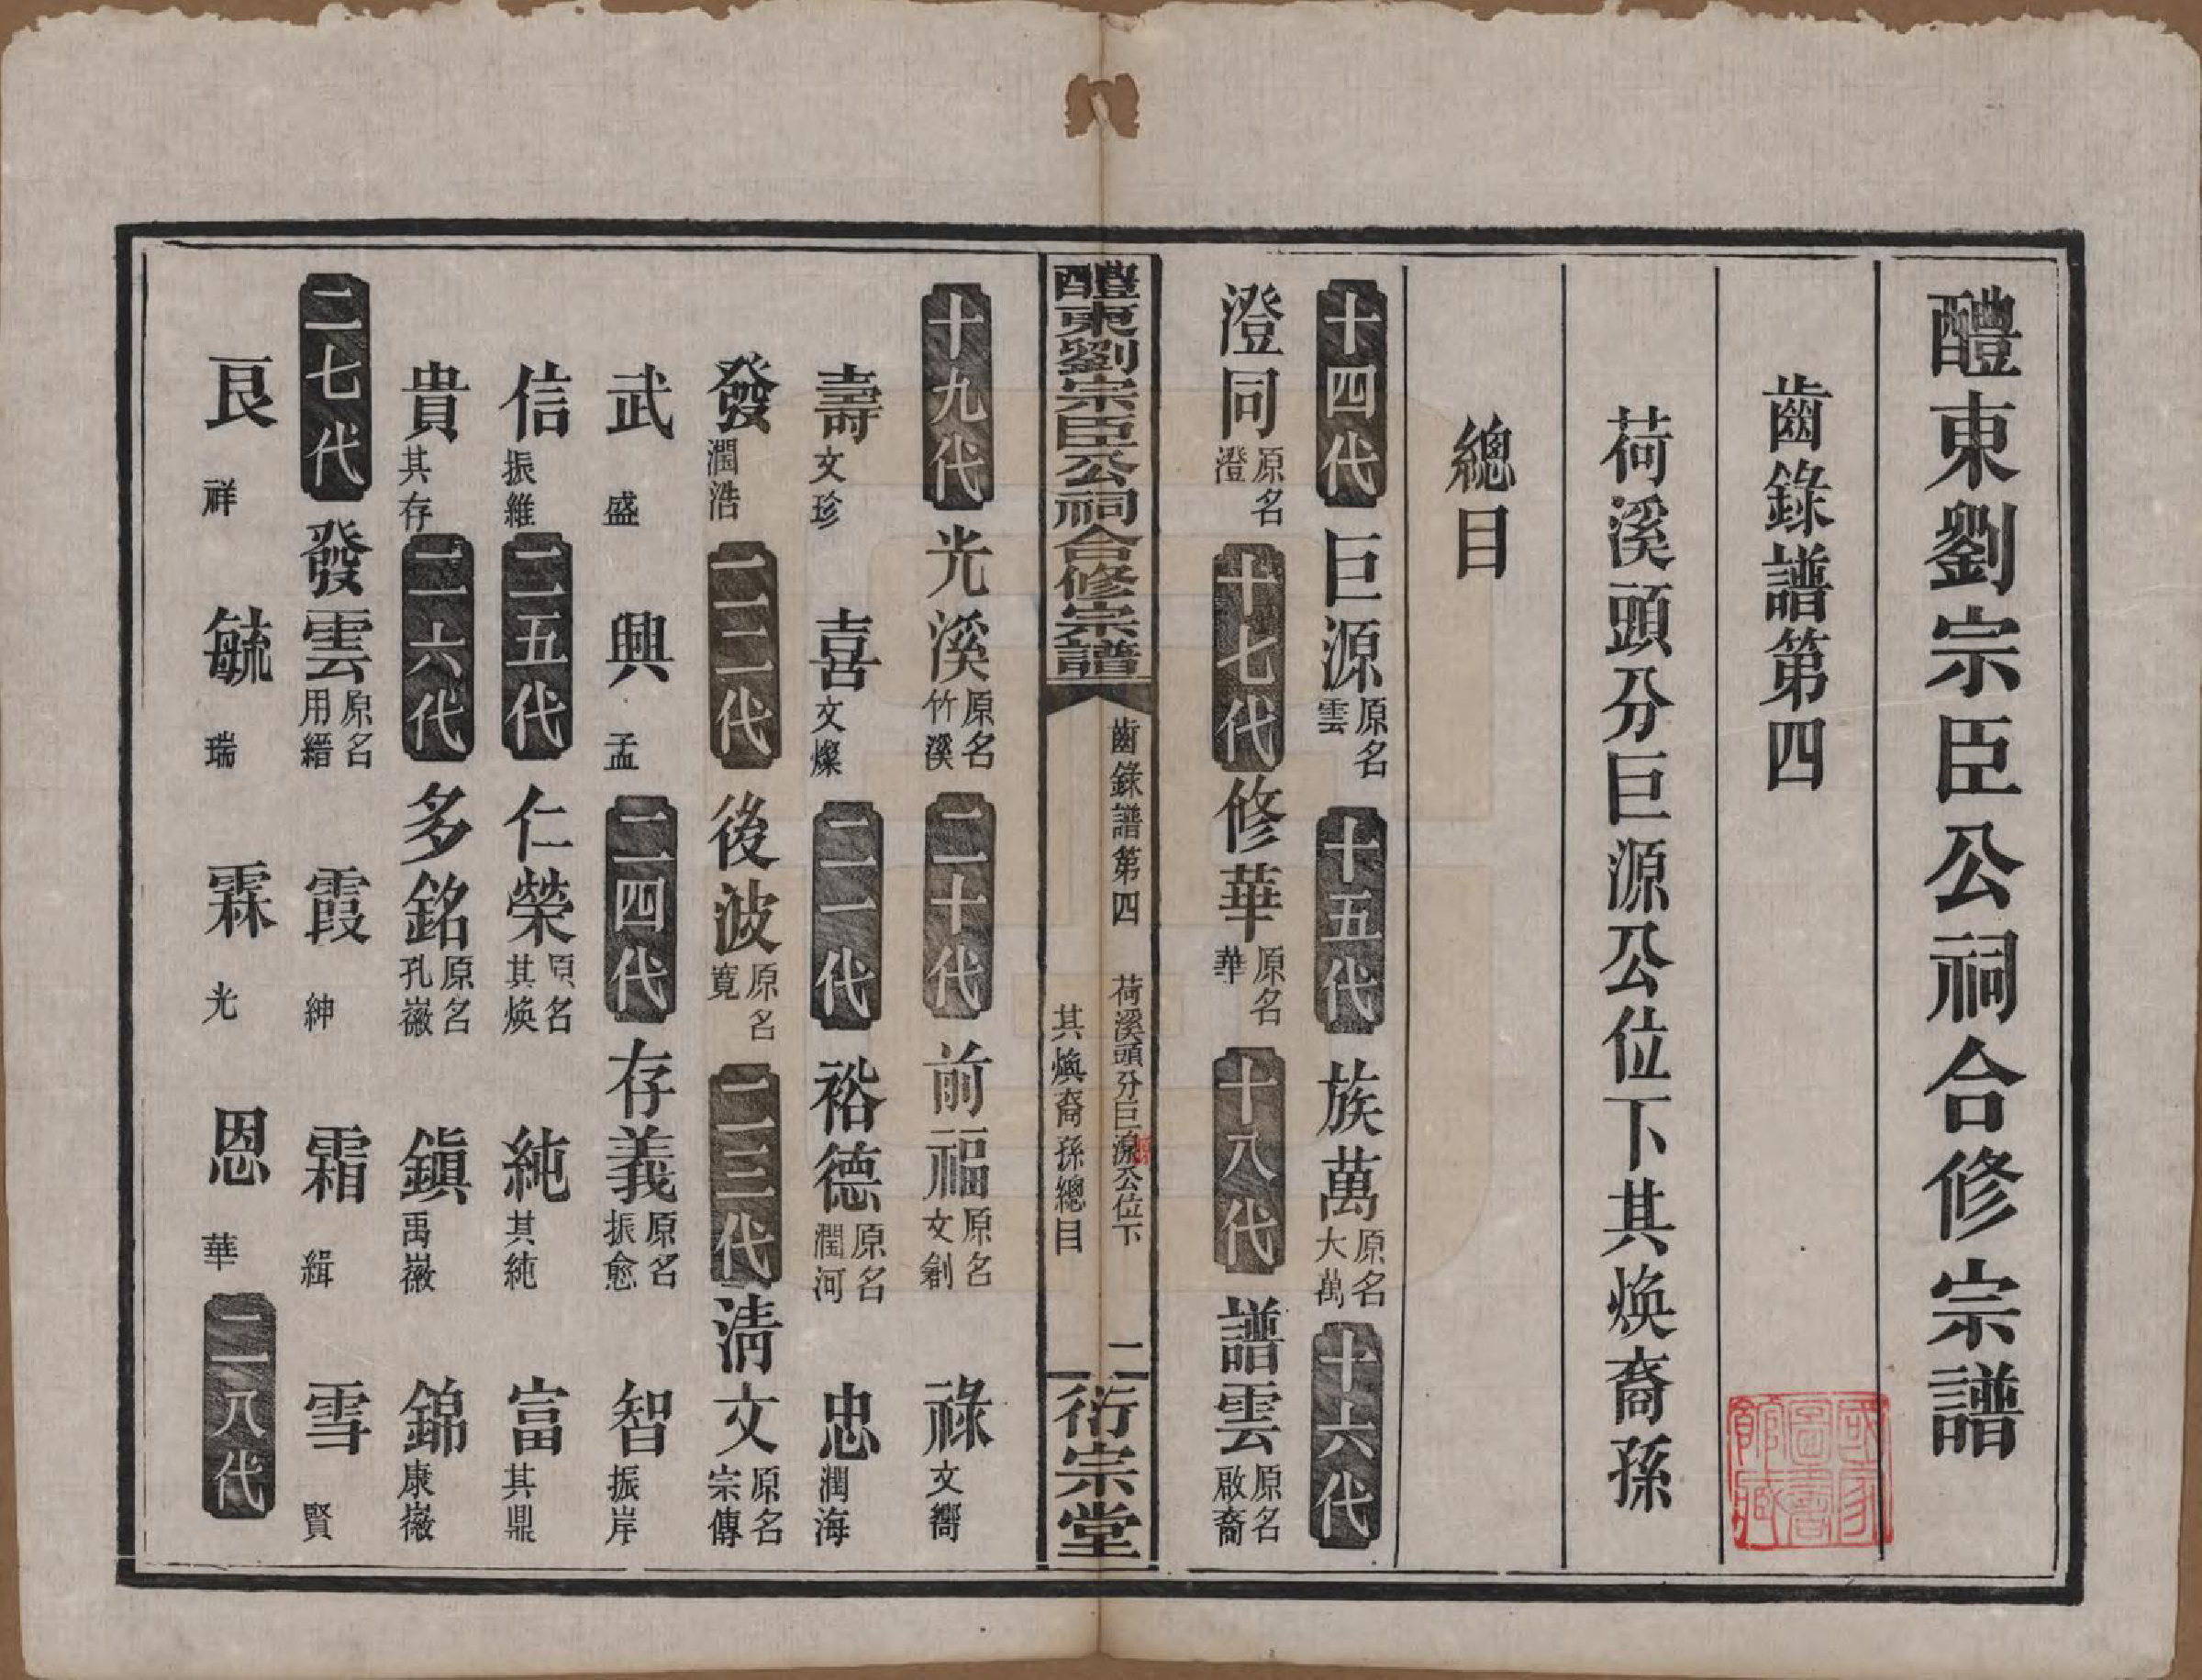 醴東劉宗臣公祠合修宗譜
齒錄譜第四
荷溪頭分巨源公位下其煥裔孫
總目
十四代 巨源 原名雲 十五代 族萬 原名大萬 十六代
澄同 原名澄 十七代 修華 原名華 十八代 譜雲 原名啟裔
醴東劉宗臣公祠合修宗譜 齒錄譜第四 荷溪頭分巨源公位下 其煥裔孫總目 二 衍宗堂
十九代 光溪 原名竹溪 二十代 前福 原名文創 祿 文嚮
壽 文珍 喜 文燦 二一代 裕德 原名潤河 忠 潤海
發 潤浩 二二代 後波 原名寬 二三代 清文 原名宗傳
武 盛 興 孟 二四代 存義 原名振愈 智 振岸
信 振維 二五代 仁榮 原名其煥 純 其純 富 其鼎
貴 其存 二六代 多銘 原名孔嶶 鎮 禹嶶 錦 康嶶
二七代 發雲 原名用縉 霞 紳 霜 緝 雪 賢
艮 祥 毓 瑞 霖 光 恩 華 二八代
國家圖書館藏